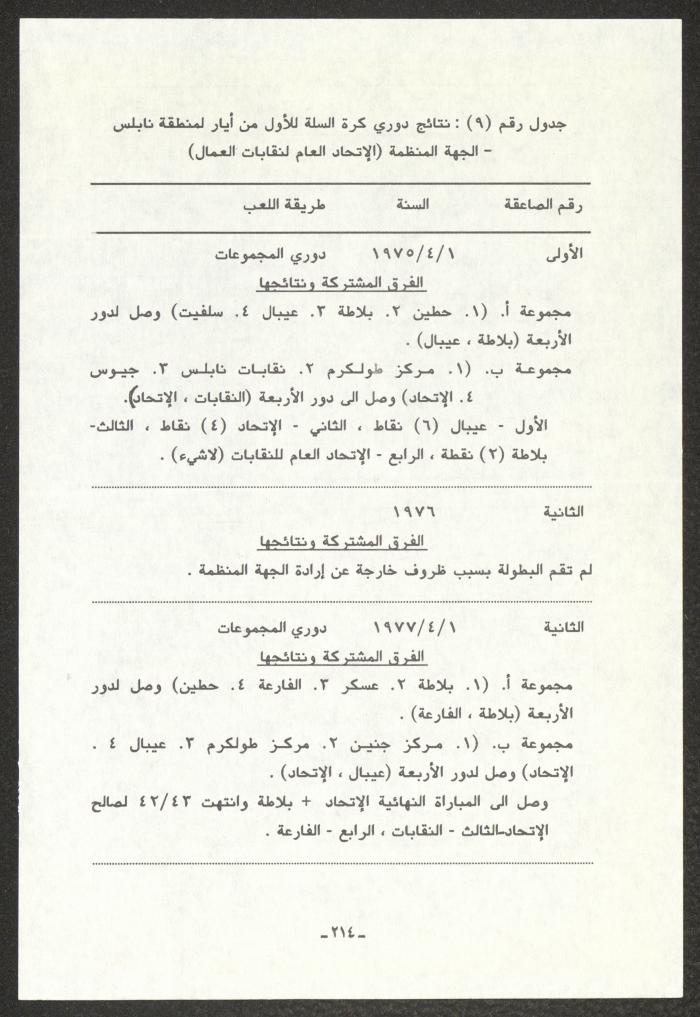 جدول رقم (٩) : نتائج دوري كرة السلة للأول من أيار لمنطقة نابلس
- الجهة المنظمة (الإتحاد العام لنقابات العمال)
رقم الصاعقة السنة طريقة اللعب
الأولى ١٩٧٥/٤/١ دوري المجموعات
الفرق المشتركة ونتائجها
مجموعة أ. (١. حطين ٢. بلاطة ٣. عيبال ٤. سلفيت) وصل لدور
الأربعة (بلاطة ، عيبال) .
مجموعة ب. (١. مركز طولكرم ٢. نقابات نابلس ٣. جيوس
٤. الإتحاد) وصل الى دور الأربعة (النقابات ، الإتحاد).
الأول - عيبال (٦) نقاط ، الثاني - الإتحاد (٤) نقاط ، الثالث-
بلاطة (٢) نقطة ، الرابع - الإتحاد العام للنقابات (لاشيء) .
الثانية ١٩٧٦
الفرق المشتركة ونتائجها
لم تقم البطولة بسبب ظروف خارجة عن إرادة الجهة المنظمة .
الثانية ١٩٧٧/٤/١ دوري المجموعات
الفرق المشتركة ونتائجها
مجموعة أ. (١. بلاطة ٢. عسكر ٣. الفارعة ٤. حطين) وصل لدور
الأربعة (بلاطة ، الفارعة) .
مجموعة ب. (١. مركز جنين ٢. مركز طولكرم ٣. عيبال ٤ .
الإتحاد) وصل لدور الأربعة (عيبال ، الإتحاد) .
وصل الى المباراة النهائية الإتحاد + بلاطة وانتهت ٤٢/٤٣ لصالح
الإتحاد-الثالث - النقابات ، الرابع - الفارعة .
- ٢١٤ -